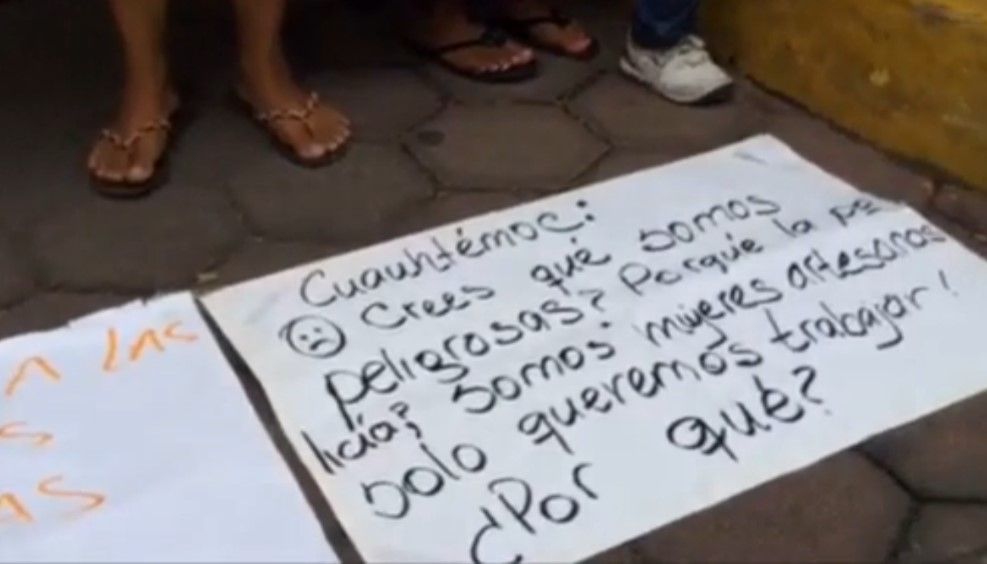 Cuauhtémoc:
Crees qué somos
peligrosas? Porqué la po
licía? Somos mujeres artesanas
solo queremos trabajar!
¿Por qué?
A las
s
as